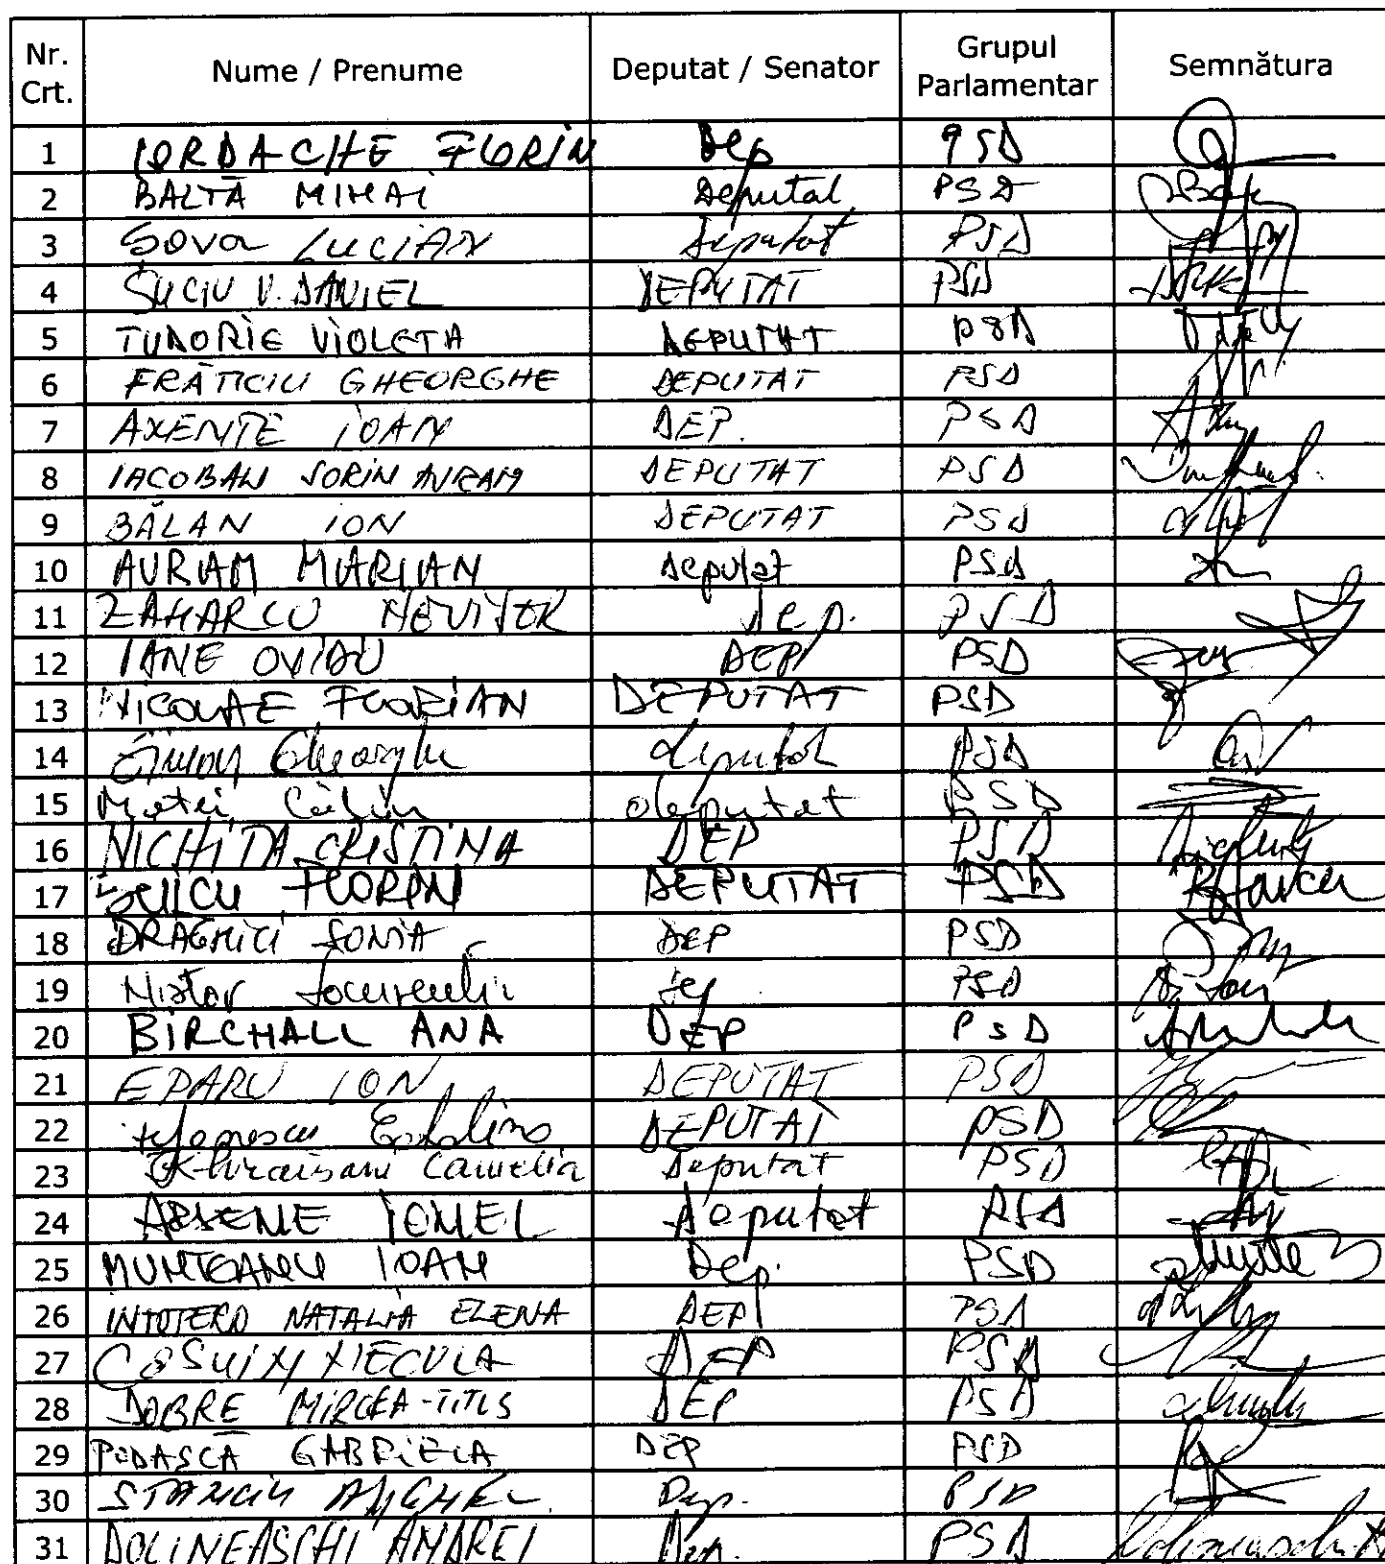 Nr. Crt. Nume / Prenume Deputat / Senator Grupul Parlamentar Semnătura
1 IORDACHE FLORIN Dep PSD
2 BALTĂ MIHAI Deputat PSD
3 Șova LUCIAN Deputat PSD
4 SUCIU V. DANIEL DEPUTAT PSD
5 TUDORIE VIOLETA DEPUTAT PSD
6 FRĂTICIU GHEORGHE DEPUTAT PSD
7 AXENTE IOAN DEP. PSD
8 IACOBAN SORIN AVRAM DEPUTAT PSD
9 BĂLAN ION DEPUTAT PSD
10 AVRAM MARIAN Deputat PSD
11 ZAHARCU NEVITOR Dep. PSD
12 IANE OVIDIU DEP PSD
13 NICOLAE FLORIAN DEPUTAT PSD
14 Șimon Gheorghe deputat PSD
15 Matei Călin deputat PSD
16 NICHITA CRISTINA DEP PSD
17 FLORIN DEPUTAT PSD
18 DRAGHICI SONIA DEP PSD
19 Nistor PSD
20 BIRCHALL ANA DEP PSD
21 EPARU ION DEPUTAT PSD
22 DEPUTAT PSD
23 Khraisani Camelia Deputat PSD
24 ARSENE IONEL Deputat PSD
25 MUNTEANU IOAN Dep. PSD
26 INTOTERO NATALIA ELENA DEP PSD
27 DEP PSD
28 DOBRE MIRCEA-TITUS DEP PSD
29 PODASCĂ GABRIELA DEP PSD
30 STANCIU ANGHEL Dep. PSD
31 DOLINEASCHI ANDREI Dep. PSD